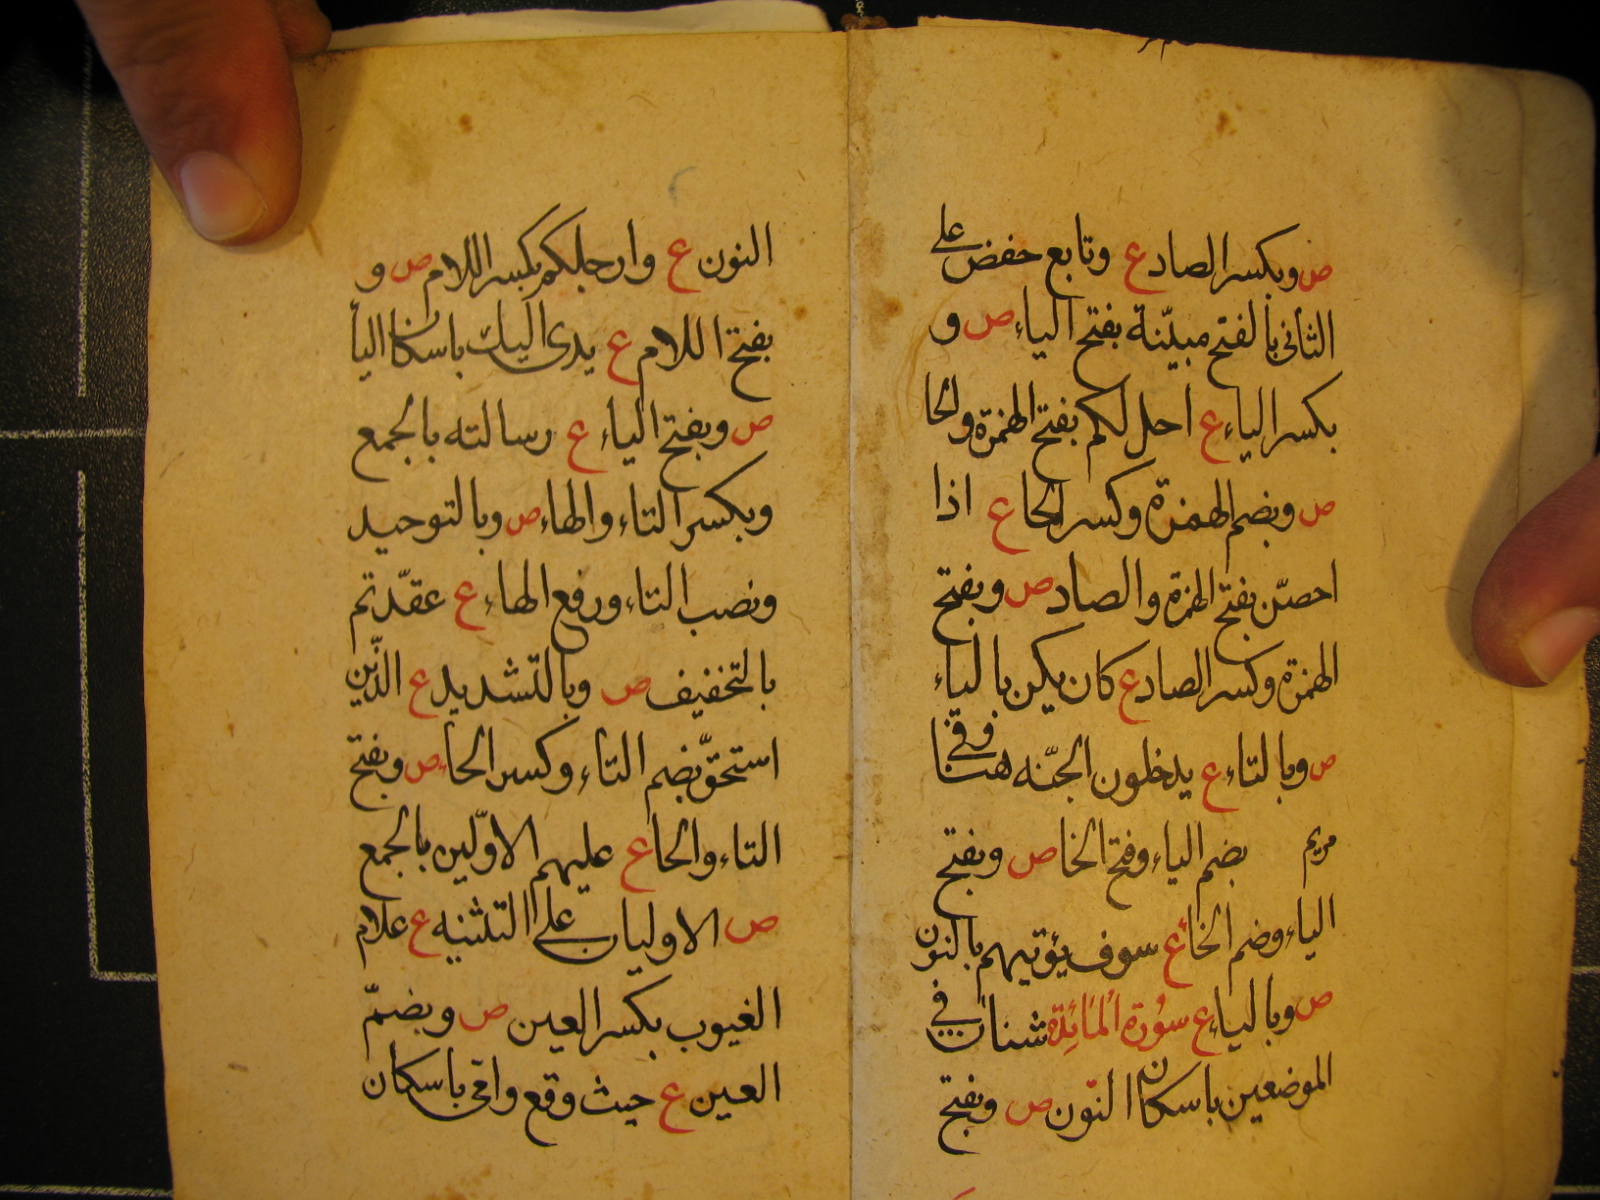 ص وبكسر الصاد ع وتابع حفض على
الثانى بالفتح مبيّنة بفتح الياء ص و
بكسر الياء ع احل لكم بفتح الهمزة والحا
ص وبضم الهمزة وكسر الحا ع اذا
احصنّ بفتح الهمزة والصاد ص وبفتح
الهمزة وكسر الصاد ع كان يكن بالياء
ص وبالتاء ع يدخلون الجنّه هنا وفى
مريم بضم الياء وفتح الخا ص وبفتح
الياء وضم الخأ ع سوف يؤتيهم بالنون
ص وبالياء ع سُورة المَائِدَة شنان فى
الموضعين باسكان النّون ص وبفتح
النون ع وارجلكم بكسر اللام ص و
بفتح اللام ع يدى اليك باسكان اليأ
ص وبفتح الياء ع رسالته بالجمع
وبكسر التاء والهاء ص وبالتوحيد
ونصب التاء ورفع الهاء ع عقّدتم
بالتخفيف ص وبالتشديد ع الذّين
استحقّ بضم التاء وكسر الحاء ص وبفتح
التاء والحا ع عليهم الاوّلين بالجمع
ص الاوليان على التثنيه ع علام
الغيوب بكسر العين ص وبضمّ
العين ع حيث وقع وافى باسكان